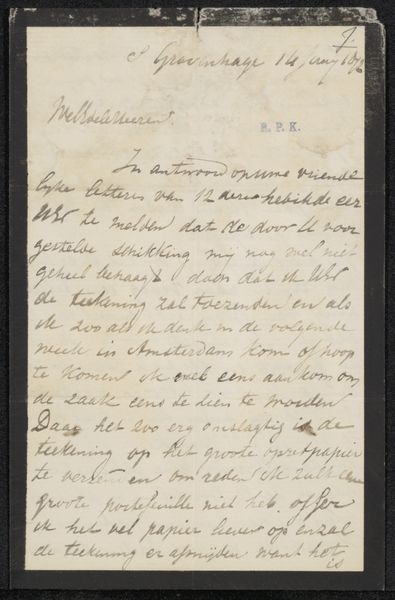 7.
S Gravenhage 14 Juny 187
WelEdele Heeren
R. P. K.
In antwoord op uwe vriende
lyke letteren van 12 dezer heb ik de eer
UW te melden dat de door U voor
gestelde schikking my nog wel niet
geheel behaagt doch dat ik UW
de teekening zal toezenden en als
ik zoo als ik denk in de volgende
week in Amsterdam kom of hoop
te komen ik wel eens aankom om
de zaak eens te zien te worden
Daar het zoo erg omslagtig is de
teekening op het groote papier
te verzenden om reden ik zulk een
groote portefeuille niet heb. offer
ik het vel papier liever op en zal
de teekening er afsnyden want het
is